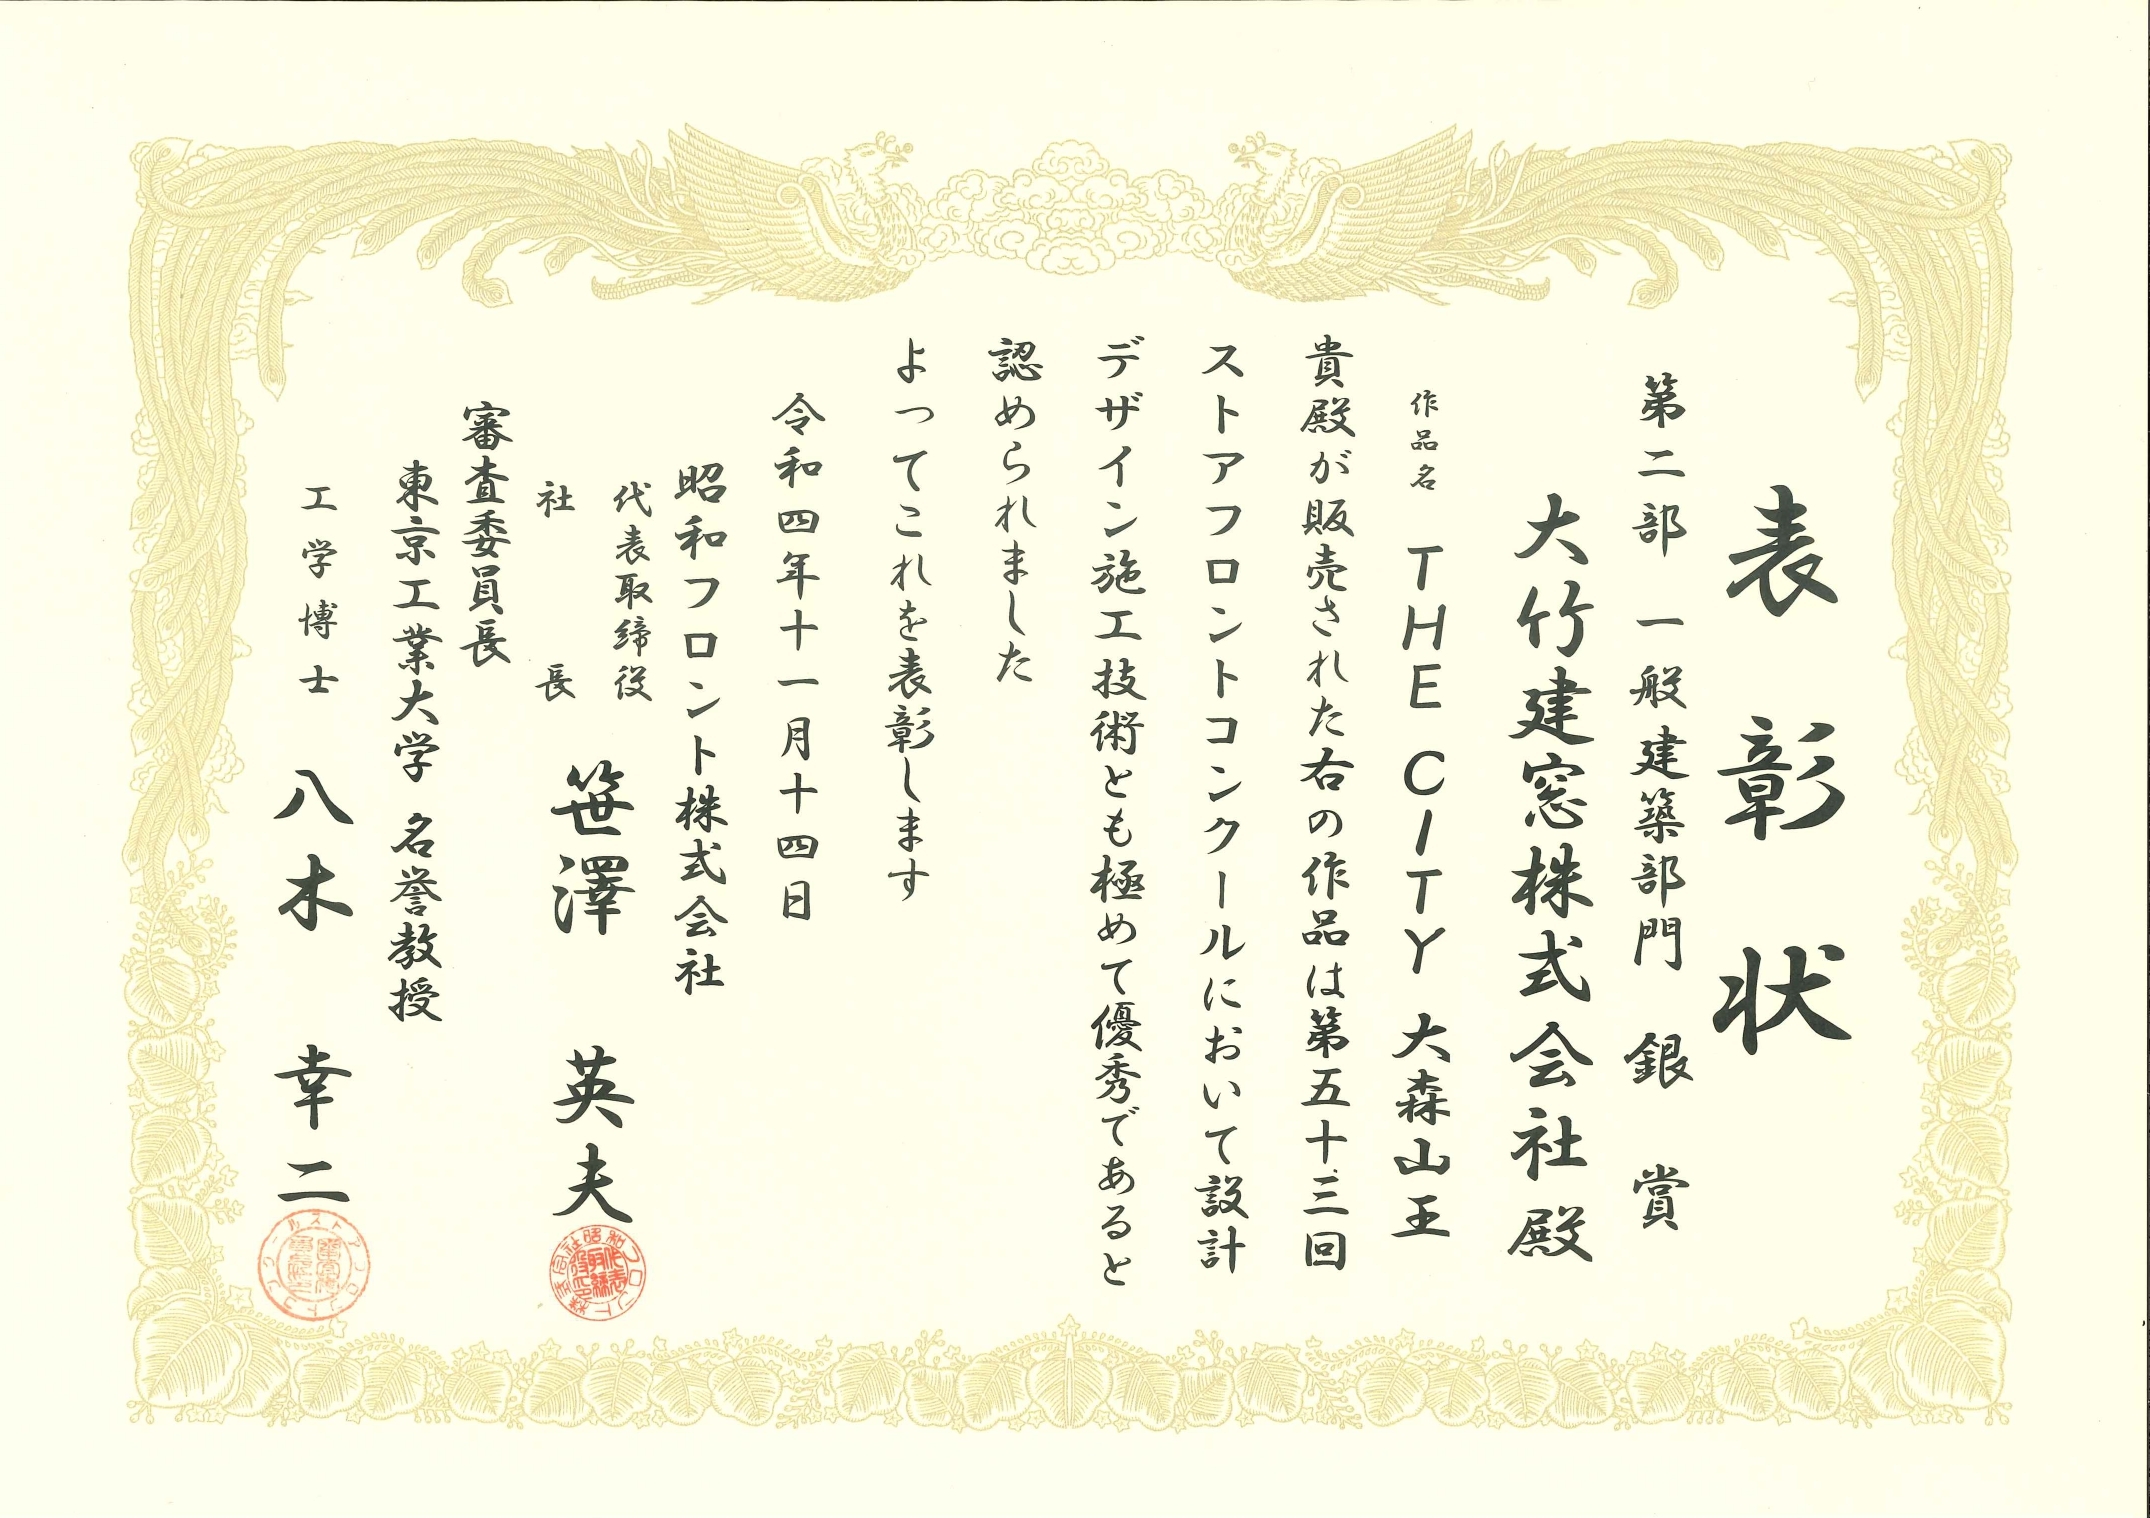 表彰状
第二部 一般建築部門 銀賞
大竹建窓株式会社殿
作品名 THE CITY 大森山王
貴殿が販売された右の作品は第五十三回
ストアフロントコンクールにおいて設計
デザイン施工技術とも極めて優秀であると
認められました
よってこれを表彰します
令和四年十一月十四日
昭和フロント株式会社
代表取締役
社長 笹澤英夫
審査委員長
東京工業大学 名誉教授
工学博士 八木幸二